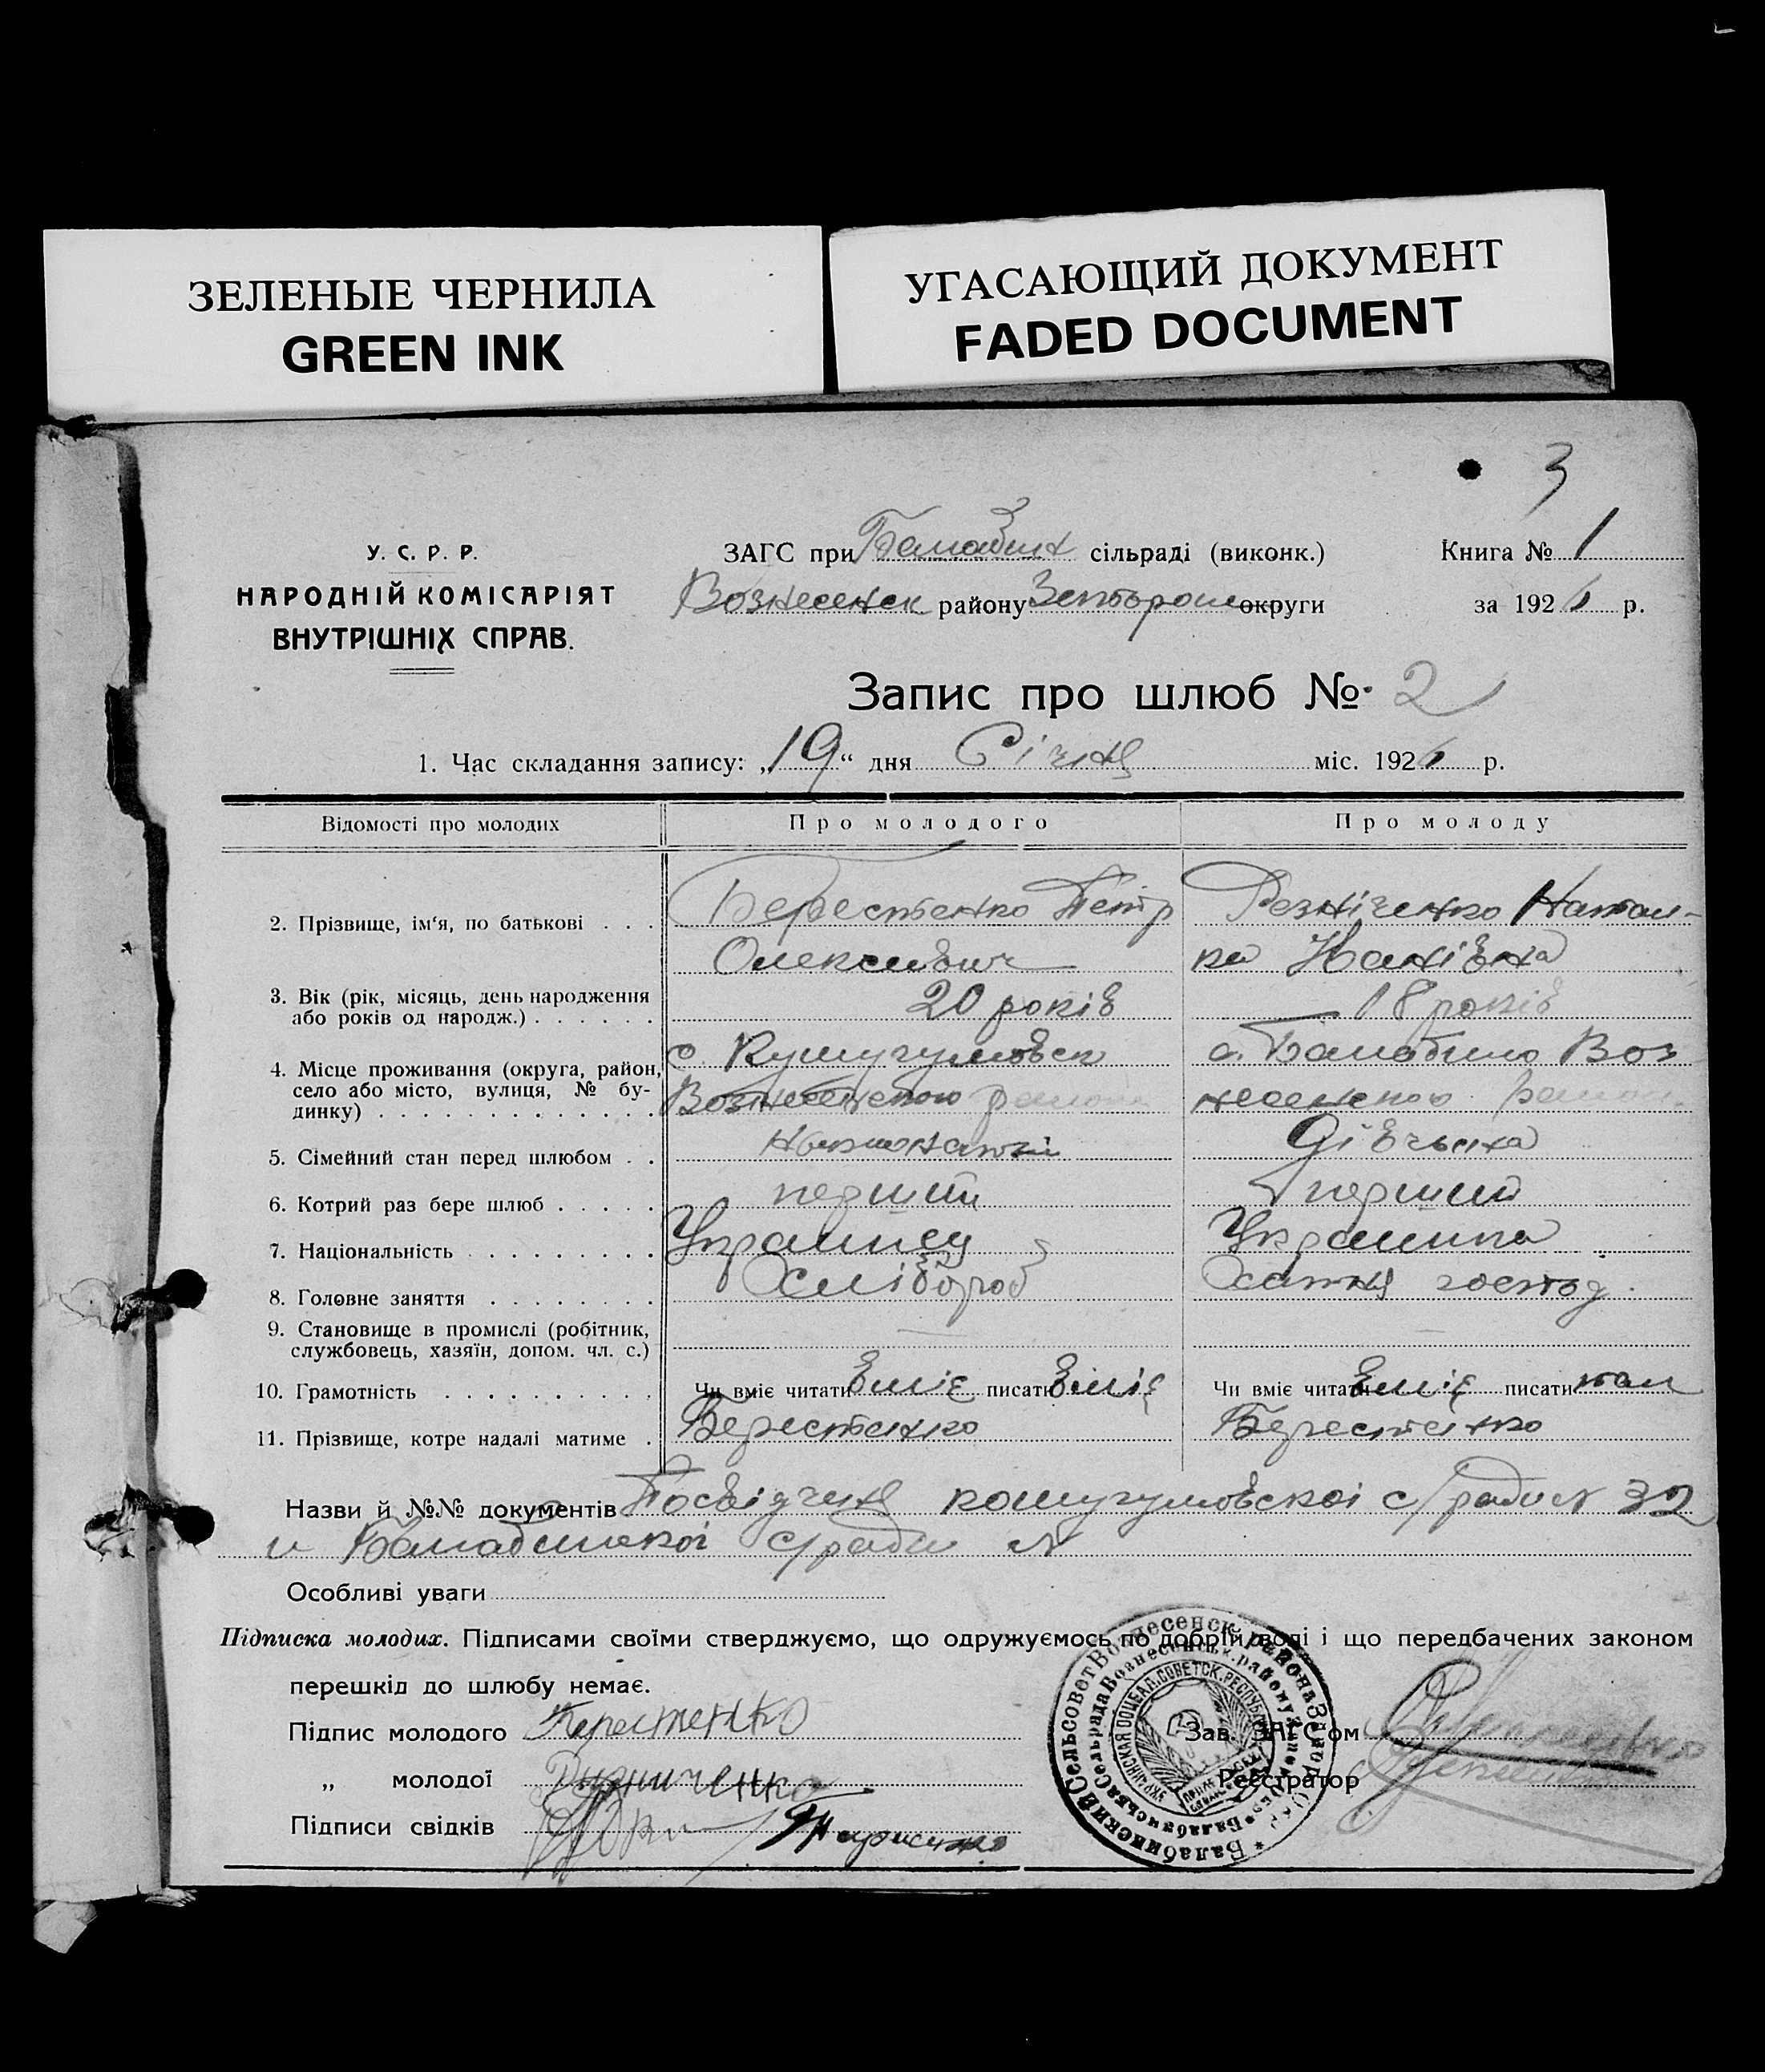 ЗЕЛЕНЫЕ ЧЕРНИЛА
GREEN INK
УГАСАЮЩИЙ ДОКУМЕНТ
FADED DOCUMENT
3
У. С. Р. Р.
НАРОДНІЙ КОМІСАРІЯТ
ВНУТРІШНІХ СПРАВ.
ЗАГС при Балабинк сільраді (виконк.) Книга № 1
Вознесенск району округи за 1926 р.
Запис про шлюб № 2
1. Час складання запису: „19“ дня Січня міс. 1926 р.
Відомості про молодих Про молодого Про молоду
2. Прізвище, ім‘я, по батькові . . . Берестенко Петр Резніченко Натал-
Олексиевич ка Иванівна
3. Вік (рік, місяць, день народження
або років од народж.) . . . . . . 20 років 18 років
4. Місце проживання (округа, район,
село або місто, вулиця, № бу-
динку) . . . . . . . . . . . . .
с. Кушугумовск с. Балабино Воз
Вознесенского району несенского
5. Сімейний стан перед шлюбом . . Дівчына
6. Котрий раз бере шлюб . . . . . перший перший
7. Національність . . . . . . . . . Украинец Украинка
8. Головне заняття . . . . . . . . Хлібороб Хатня господ.
9. Становище в промислі (робітник,
службовець, хазяїн, допом. чл. с.)
10. Грамотність . . . . . . . . . . Чи вміє читати вміє писати вміє Чи вміє читати вміє писати
11. Прізвище, котре надалі матиме . Берестенко Берестенко
Назви й №№ документів Посвідчиня кошугумовскоі с/ради № 32
и Балабинскоі с/ради №
Особливі уваги
Підписка молодих. Підписами своїми стверджуємо, що одружуємось по добрій волі і що передбачених законом
перешкід до шлюбу немає.
Підпис молодого Берестенко
„ молодої
Підписи свідків
Зав. ЗАГС‘ом
Реєстратор
Балабинский Сельсовет Вознесенск. района
Балабинська Сельрада Вознесенськ. району
УКРАИНСКАЯ СОЦ. СОВЕТСК. РЕСПУБЛ.